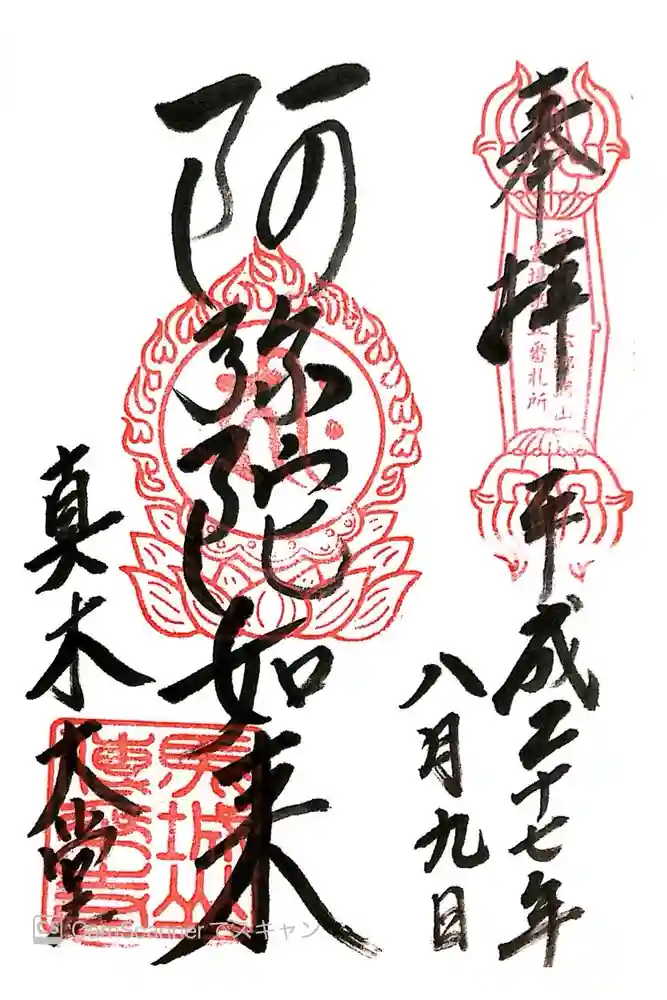 奉拝
平成二十七年
八月九日
阿弥陀如来
真木大堂
番札所
CS CamScanner でスキャン